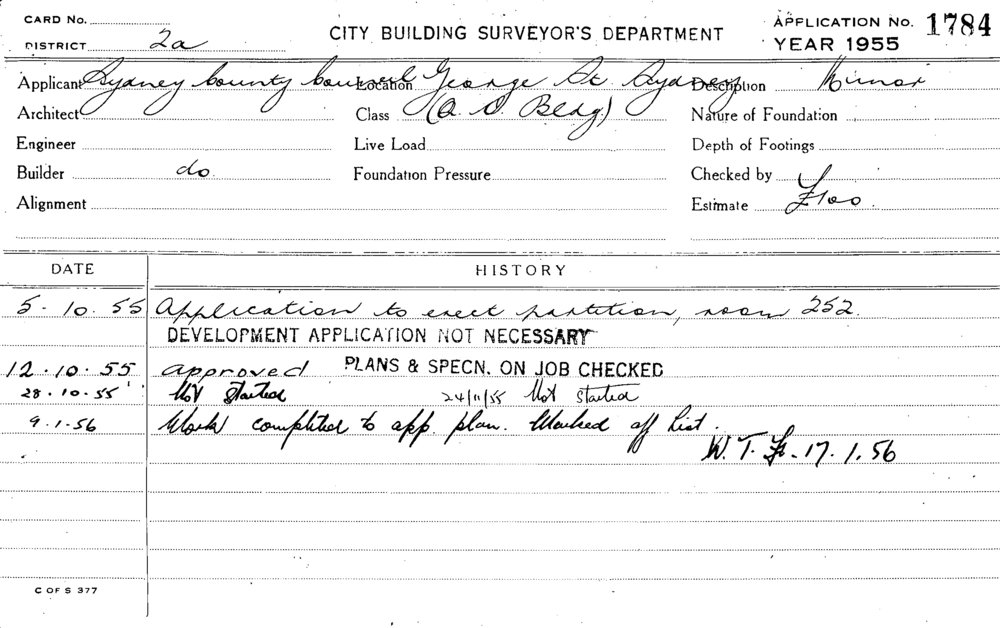 CARD No.
CITY BUILDING SURVEYOR'S DEPARTMENT
APPLICATION No. 1784
DISTRICT 2a
YEAR 1955
Applicant Sydney County Council Location George St. Sydney Description Minor
Architect Class (Q. V. Bldg.) Nature of Foundation
Engineer Live Load Depth of Footings
Builder do Foundation Pressure Checked by
Alignment Estimate £100.
DATE HISTORY
5.10.55 Application to erect partition, room 252.
DEVELOPMENT APPLICATION NOT NECESSARY
12.10.55 approved PLANS & SPECN. ON JOB CHECKED
28.10.55 Not started 24/11/55 Not started
9.1.56 Work completed to app. plan. Marked off List.
W. T. 17.1.56
C OF S 377